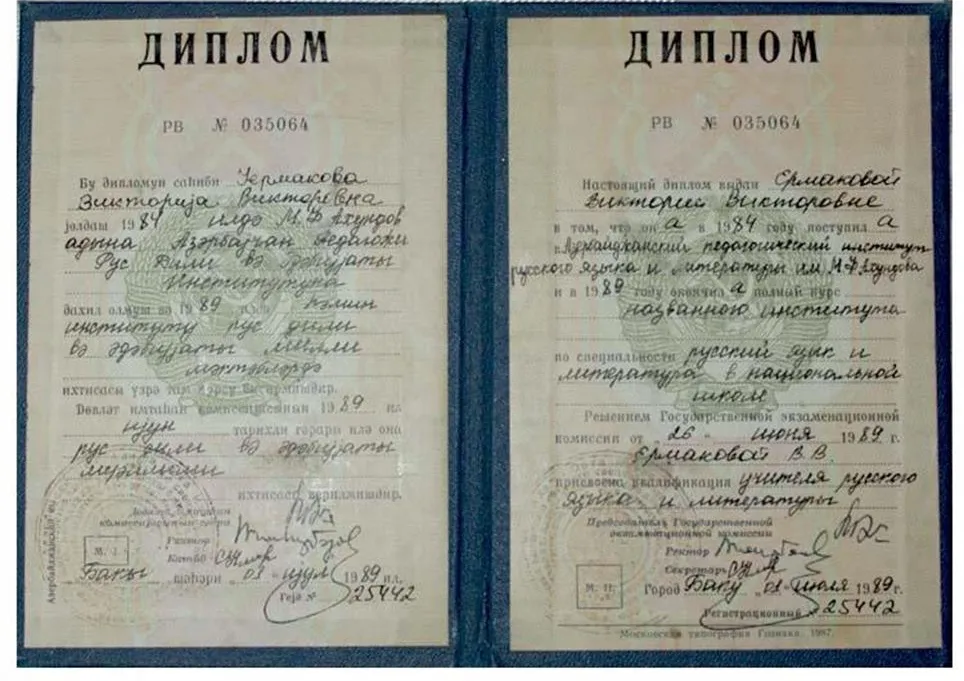 ДИПЛОМ
РВ № 035064
Бу дипломун саһиби Јермакова
Викторија Викторевна
јолдаш 1984 илдә М.Ф Ахундов
адына Азәрбајҹан Педагожи
Рус Дили вә әдәбијаты
Институтуна
дахил олмуш вә 1989 илдә һәмин
институту рус дили
вә әдәбијаты милли
мәктәбләрдә
ихтисасы үзрә там курсу битирмишдир.
Дөвләт имтаһан комиссијасынын 1989 ил
тарихли гәрары илә она
рус дили вә әдәбијаты
мүәллими
ихтисасы верилмишдир.
Ректор
Катиб
М. Ј.
Бакы шәһәри 01 ијул 1989 ил.
Гејд № 25442
ДИПЛОМ
РВ № 035064
Настоящий диплом выдан Ермаковой
Виктории Викторовне
в том, что он а в 1984 году поступил а
в Азербайджанский педагогический институт
русского языка и литературы им. М.Ф Ахундова
и в 1989 году окончил а полный курс
названного института
по специальности русский язык и
литература в национальной
школе
Решением Государственной экзаменационной
комиссии от „26" июня 1989 г.
Ермаковой В.В.
присвоена квалификация учителя русского
языка и литературы
Председатель Государственной
экзаменационной комиссии
Ректор
Секретарь
М. П.
Город Баку „01" июля 1989 г.
Регистрационный № 25442
Московская типография Гознака. 1987.